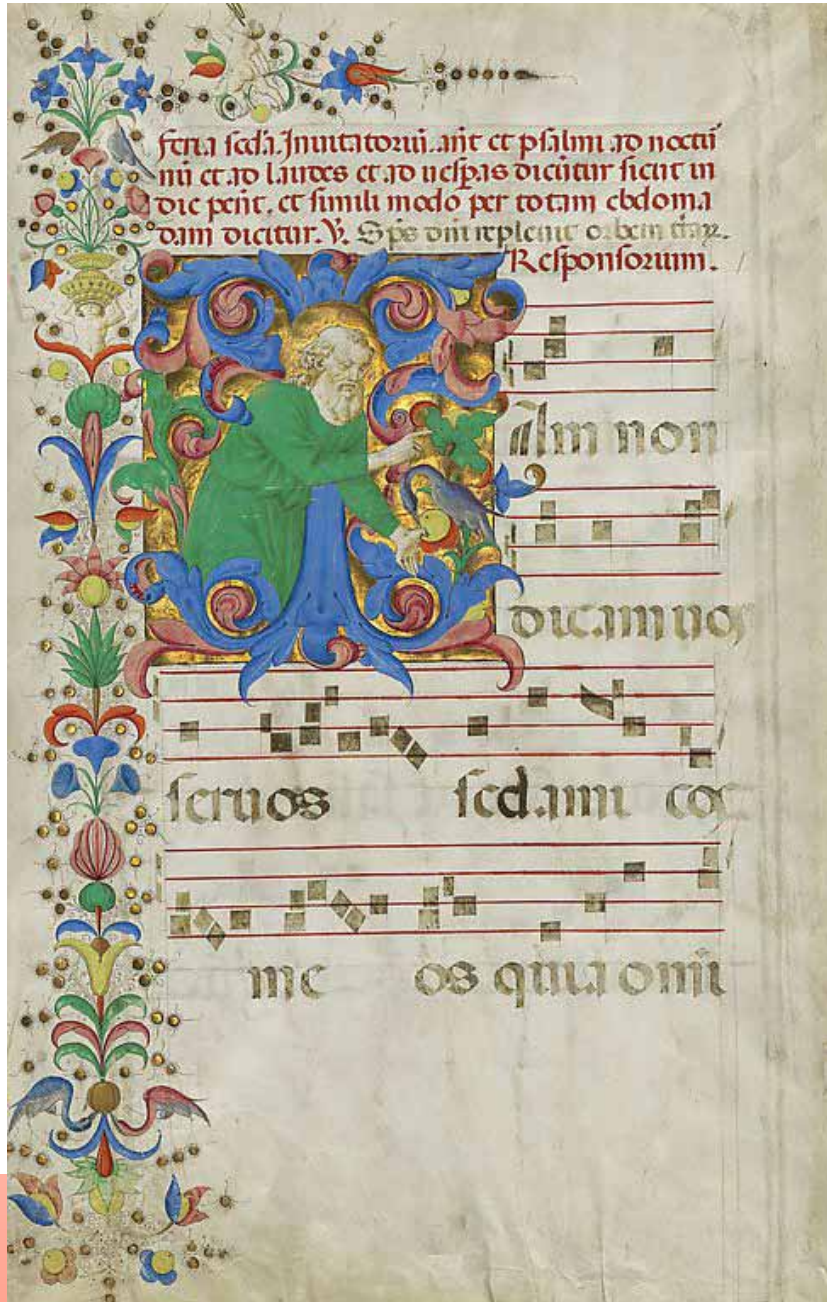 feria scda. Inuitatoriū. añt et psalmi ad noctū
nū et ad laudes et ad uesp̄as dicūtur sicut in
die peñt. et simili modo per totam ebdoma
dam dicitur. V. Sp̄s dñi repleuit orbem
Responsorium.
Iam non
dicam uos
seruos sed ami cos
me os quia omn